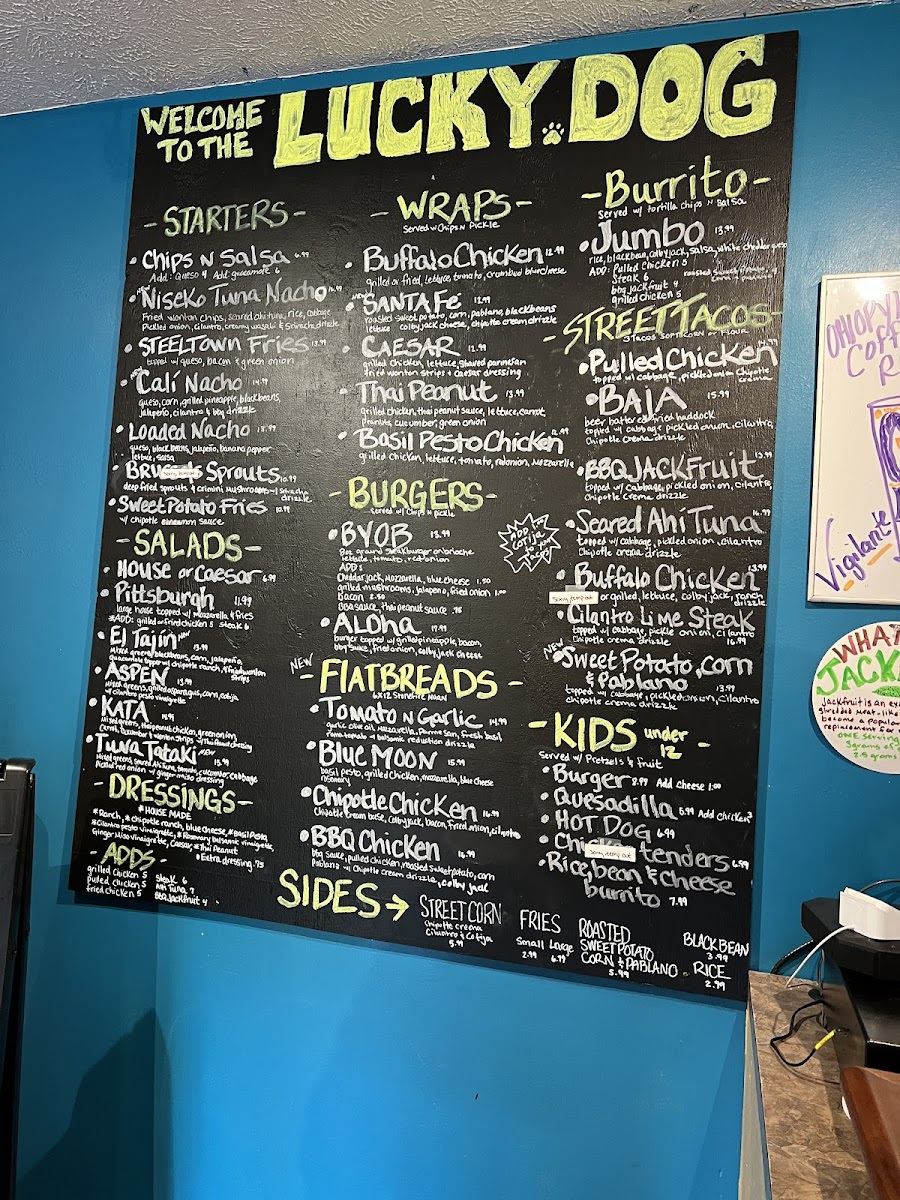 WELCOME TO THE LUCKY DOG
- STARTERS -
• Chips N Salsa 6.99
Add: Queso 4 Add guacamole 6
• Niseko Tuna Nacho
Fried wonton chips, seared ahi tuna, rice, cabbage
Pickled onion, cilantro, creamy wasabi & Sriracha drizzle
• STEELTOWN Fries
topped w/ queso, bacon & green onion
• Calí Nacho 14.99
queso, corn, grilled pineapple, black beans,
jalapeño, cilantro & bbq drizzle
• Loaded Nacho
queso, black beans, jalapeño, banana pepper
lettuce, salsa
• Sprouts 10.99
deep fried sprouts & crimini mushroom w/ Sriracha
drizzle
• Sweet Potato Fries 10.99
w/ chipotle cinnamon sauce
- SALADS -
• HOUSE or Caesar 6.99
• Pittsburgh 11.99
large house topped w/ mozzarella & fries
*ADD: grilled or fried chicken 5 steak 6
• El Tajín NEW 13.99
Mixed greens, black beans, corn, jalapeño
guacamole topped w/ chipotle ranch, & fried wonton
strips
• ASPEN 13.99
mixed greens, grilled asparagus, corn, cotija,
w/ cilantro pesto vinaigrette
• KATA
Mixed greens, thai peanut chicken, green onion,
carrot, cucumber & wonton strips w/ thai peanut dressing
• Tuna Tataki NEW 15.99
Mixed greens, seared Ahi Tuna, tomato, cucumber, cabbage
Pickled red onion w/ ginger miso dressing
- DRESSINGS -
* HOUSE MADE
*Ranch, *chipotle ranch, blue cheese, *Basil Pesto
*Cilantro pesto vinaigrette, *Rosemary balsamic vinaigrette,
Ginger Miso Vinaigrette, Caesar, *Thai Peanut
• Extra dressing .75
- ADDS -
grilled chicken 5
pulled chicken 5
fried chicken 5
Steak 6
Ahi Tuna 7
BBQ Jackfruit 4
- WRAPS -
Served w/ Chips N Pickle
• Buffalo Chicken 12.99
grilled or fried, lettuce, tomato, crumbled blue cheese
• SANTA Fé 12.99
roasted sweet potato, corn, pablano, black beans
lettuce colby jack cheese, chipotle cream drizzle
• CAESAR 12.99
grilled chicken, lettuce, shaved parmesan
fried wonton strips & caesar dressing
• Thai Peanut 13.99
grilled chicken, thai peanut sauce, lettuce, carrot
peanuts, cucumber, green onion
• Basil Pesto Chicken 12.99
grilled chicken, lettuce, tomato, red onion, mozzarella
- BURGERS -
Served w/ Chips N pickle
• BYOB 13.99
8oz ground steakburger on brioche
lettuce, tomato, red onion
ADD:
Cheddar jack, mozzarella, blue cheese 1.50
grilled mushrooms, jalapeno, fried onion 1.00
Bacon 2.50
BBQ sauce, thai peanut sauce .75
• ALOHA 17.99
burger topped w/ grilled pineapple, bacon,
bbq sauce, fried onion, colby jack cheese
NEW
- FlATBREADS -
6x12 Stonefire Naan
• Tomato N Garlic 14.99
garlic olive oil, mozzarella, Parmesan, fresh basil
roma tomato & balsamic reduction drizzle
• Blue Moon 15.99
basil pesto, grilled chicken, mozzarella, blue cheese
rosemary
• Chipotle Chicken 16.99
Chipotle cream base, colby jack, bacon, fried onion, cilantro
• BBQ Chicken 16.99
bbq sauce, pulled chicken, roasted sweet potato, corn
Pablano w/ Chipotle cream drizzle, colby jack
- Burrito -
Served w/ tortilla chips N Salsa
• Jumbo 13.99
rice, black bean, colby jack, salsa, white cheddar queso
ADD: Pulled Chicken 5
Steak 6
bbq jackfruit 4
grilled chicken 5
roasted Sweet Potato
corn & pablano 4
- STREET TACOS -
3 TACOS SOFT CORN or FLOUR
• Pulled Chicken
topped w/ cabbage, pickled onion chipotle
crema
• BAJA 15.99
beer battered fried haddock
topped w/ cabbage pickled onion, cilantro,
Chipotle crema drizzle
• BBQ JACKFruit 13.99
topped w/ cabbage, pickled onion, cilantro,
chipotle crema drizzle
add 1.00
cotija
to
tacos
• Seared Ahi Tuna 16.99
topped w/ cabbage, pickled onion, cilantro
Chipotle crema drizzle
• Buffalo Chicken 13.99
or grilled, lettuce, colby jack, ranch
drizzle
• Cilantro Lime Steak
topped w/ cabbage, pickle onion, cilantro
Chipotle crema drizzle 16.99
NEW
• Sweet Potato, corn
& Pablano 13.99
topped w/ cabbage, pickled onion, cilantro
chipotle crema drizzle
- KIDS under 12 -
Served w/ Pretzels & fruit
• Burger 8.99 Add Cheese 1.00
• Quesadilla 6.99 Add Chicken 3
• HOT DOG 6.99
• tenders 6.99
• Rice, bean & cheese
burrito 7.99
SIDES →
STREET CORN
Chipotle crema
Cilantro & Cotija
5.99
FRIES
Small Large
2.99 6.99
ROASTED
SWEET POTATO
CORN & PABLANO
5.99
BLACK BEAN
3.99
- RICE
2.99
OHIOPYL
Coff
R
Vigilante
WHAT
JACK
jackfruit is an ex
shredded meat-like
become a popular
replacement for
ONE serving
3grams of
2.5 grams